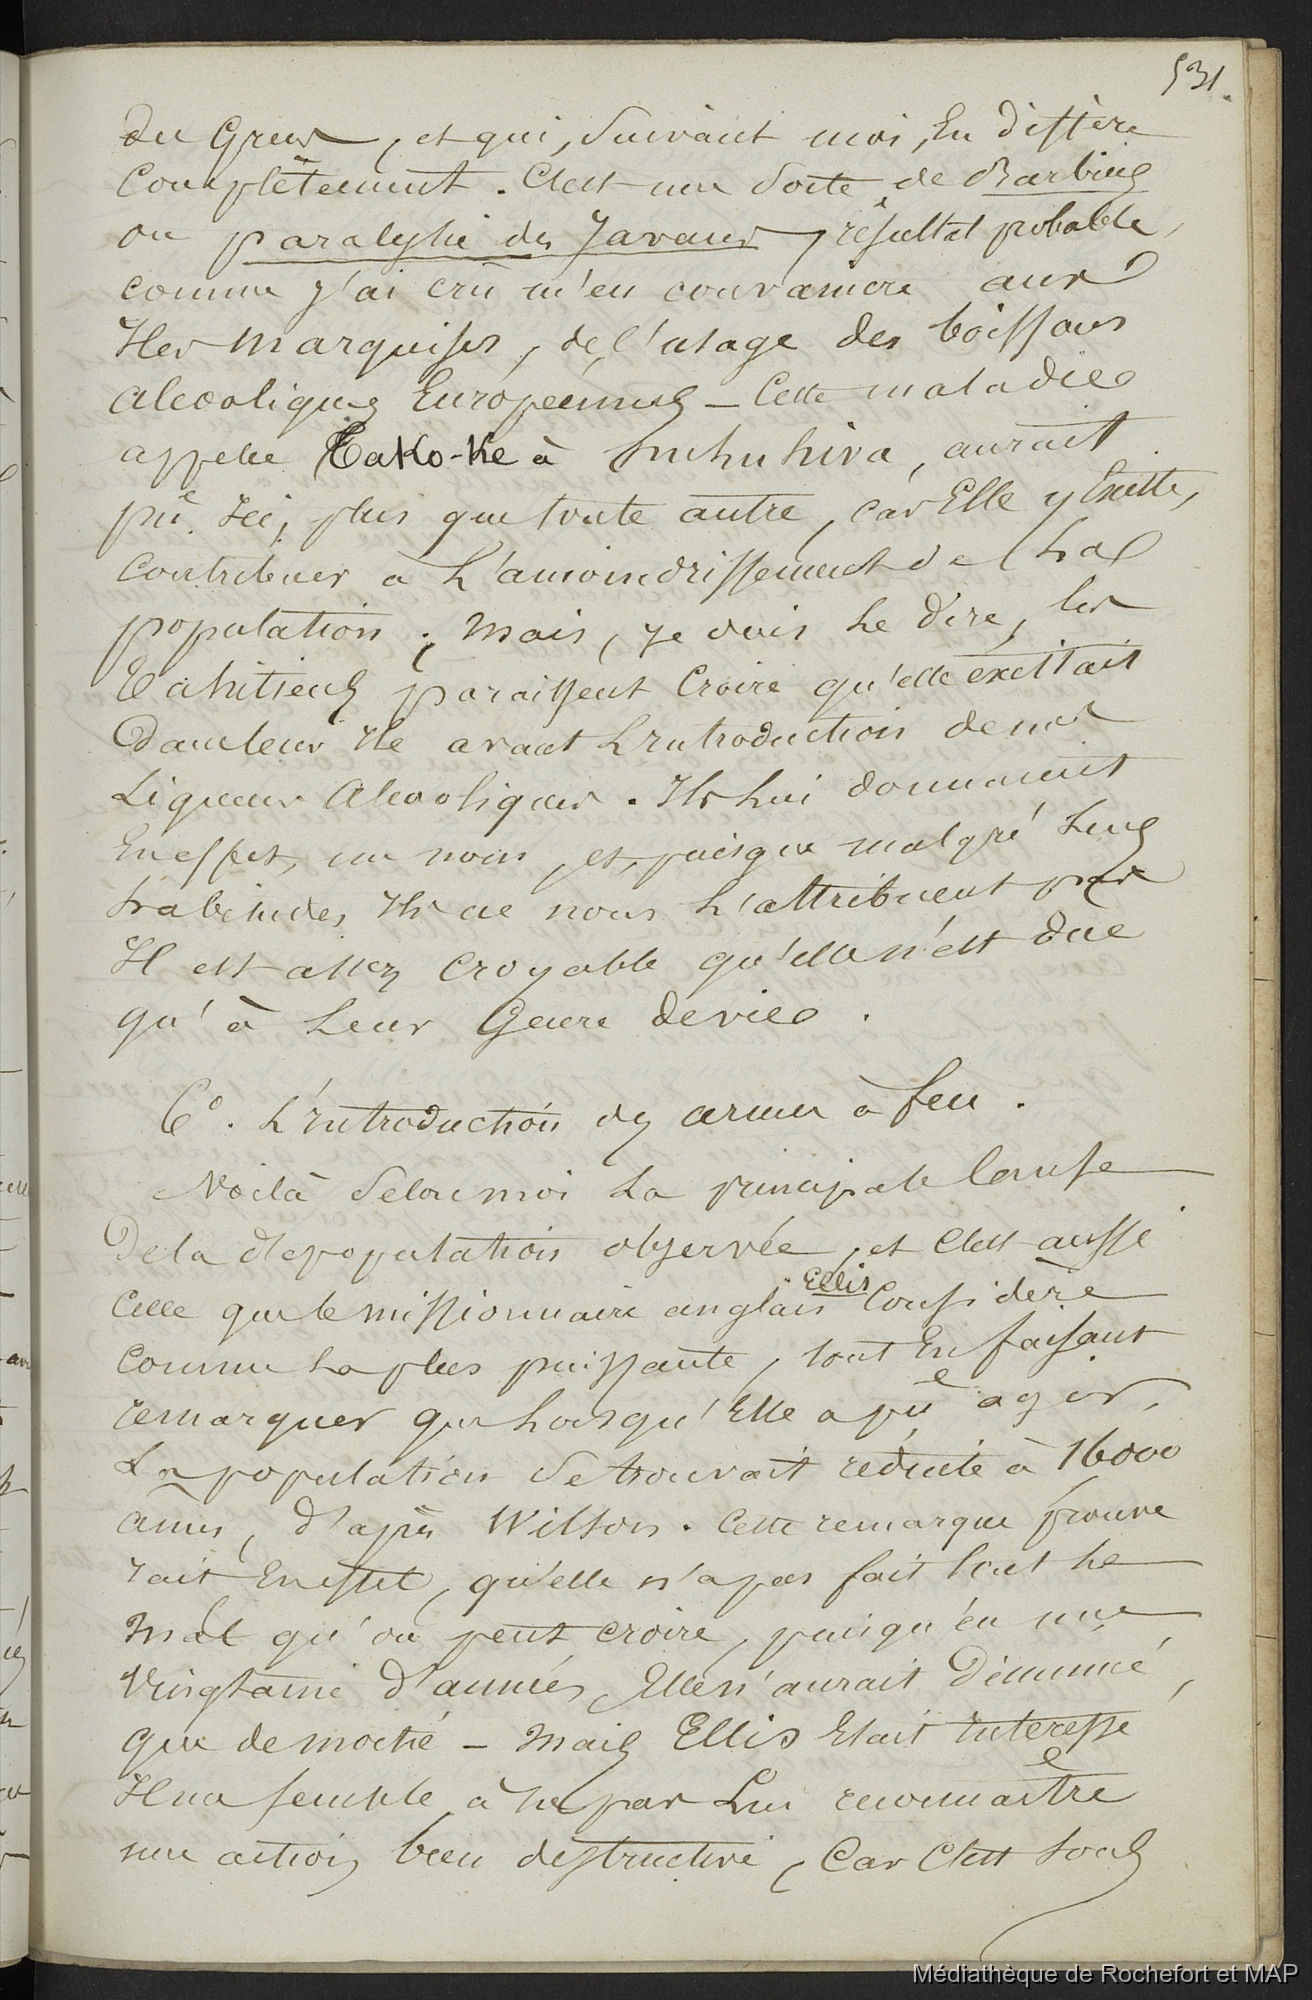 531.
du Grew, et qui, suivant moi, en diffère
complètement. C'est une sorte de Barbins
ou paralysie des Javanes, résultat probable,
comme j'ai crû m'en convaincre aux
Iles Marquises, de l'usage des boissons
alcooliques Européennes - Cette maladie
appelée Tako-Ke à Nuhuhiva, aurait
pû Ici, plus que toute autre, car Elle y Existe,
contribuer à L'amoindrissement de La
population ; Mais, je dois le dire, les
Tahitiens paraissent Croire qu'elle éxistait
Dans leur Ile avant L'introduction de nos
Liqueurs Alcooliques. Ils Lui donnaient
En effet, un nom, et, puisque malgré Leurs
habitudes, Ils ne nous L'attribuent pas
Il est assez croyable qu'elle n'est due
qu'à Leur Genre de vie.
6°. L'introduction des armes à feu.
Voilà Selon moi La principale Cause
De la dépopulation observée, et C'est aussi
Celle que le missionnaire anglais Ellis Considère
comme La plus puissante, tout En faisant
remarquer que Lorsqu'Elle a pû agir,
La population Se trouvait réduite à 16000
âmes, d'après Wilson. Cette remarque prouve
rait En effet, qu'elle n'a pas fait tout le
mal qu'on peut croire, puisqu'en une
Vingtaine d'années, Elle n'aurait Diminué,
que de moitié - Mais Ellis Etait Intéressé
Il me semble, à ne pas Lui reconnaître
une action bien destructive, Car C'est sous
Médiathèque de Rochefort et MAP